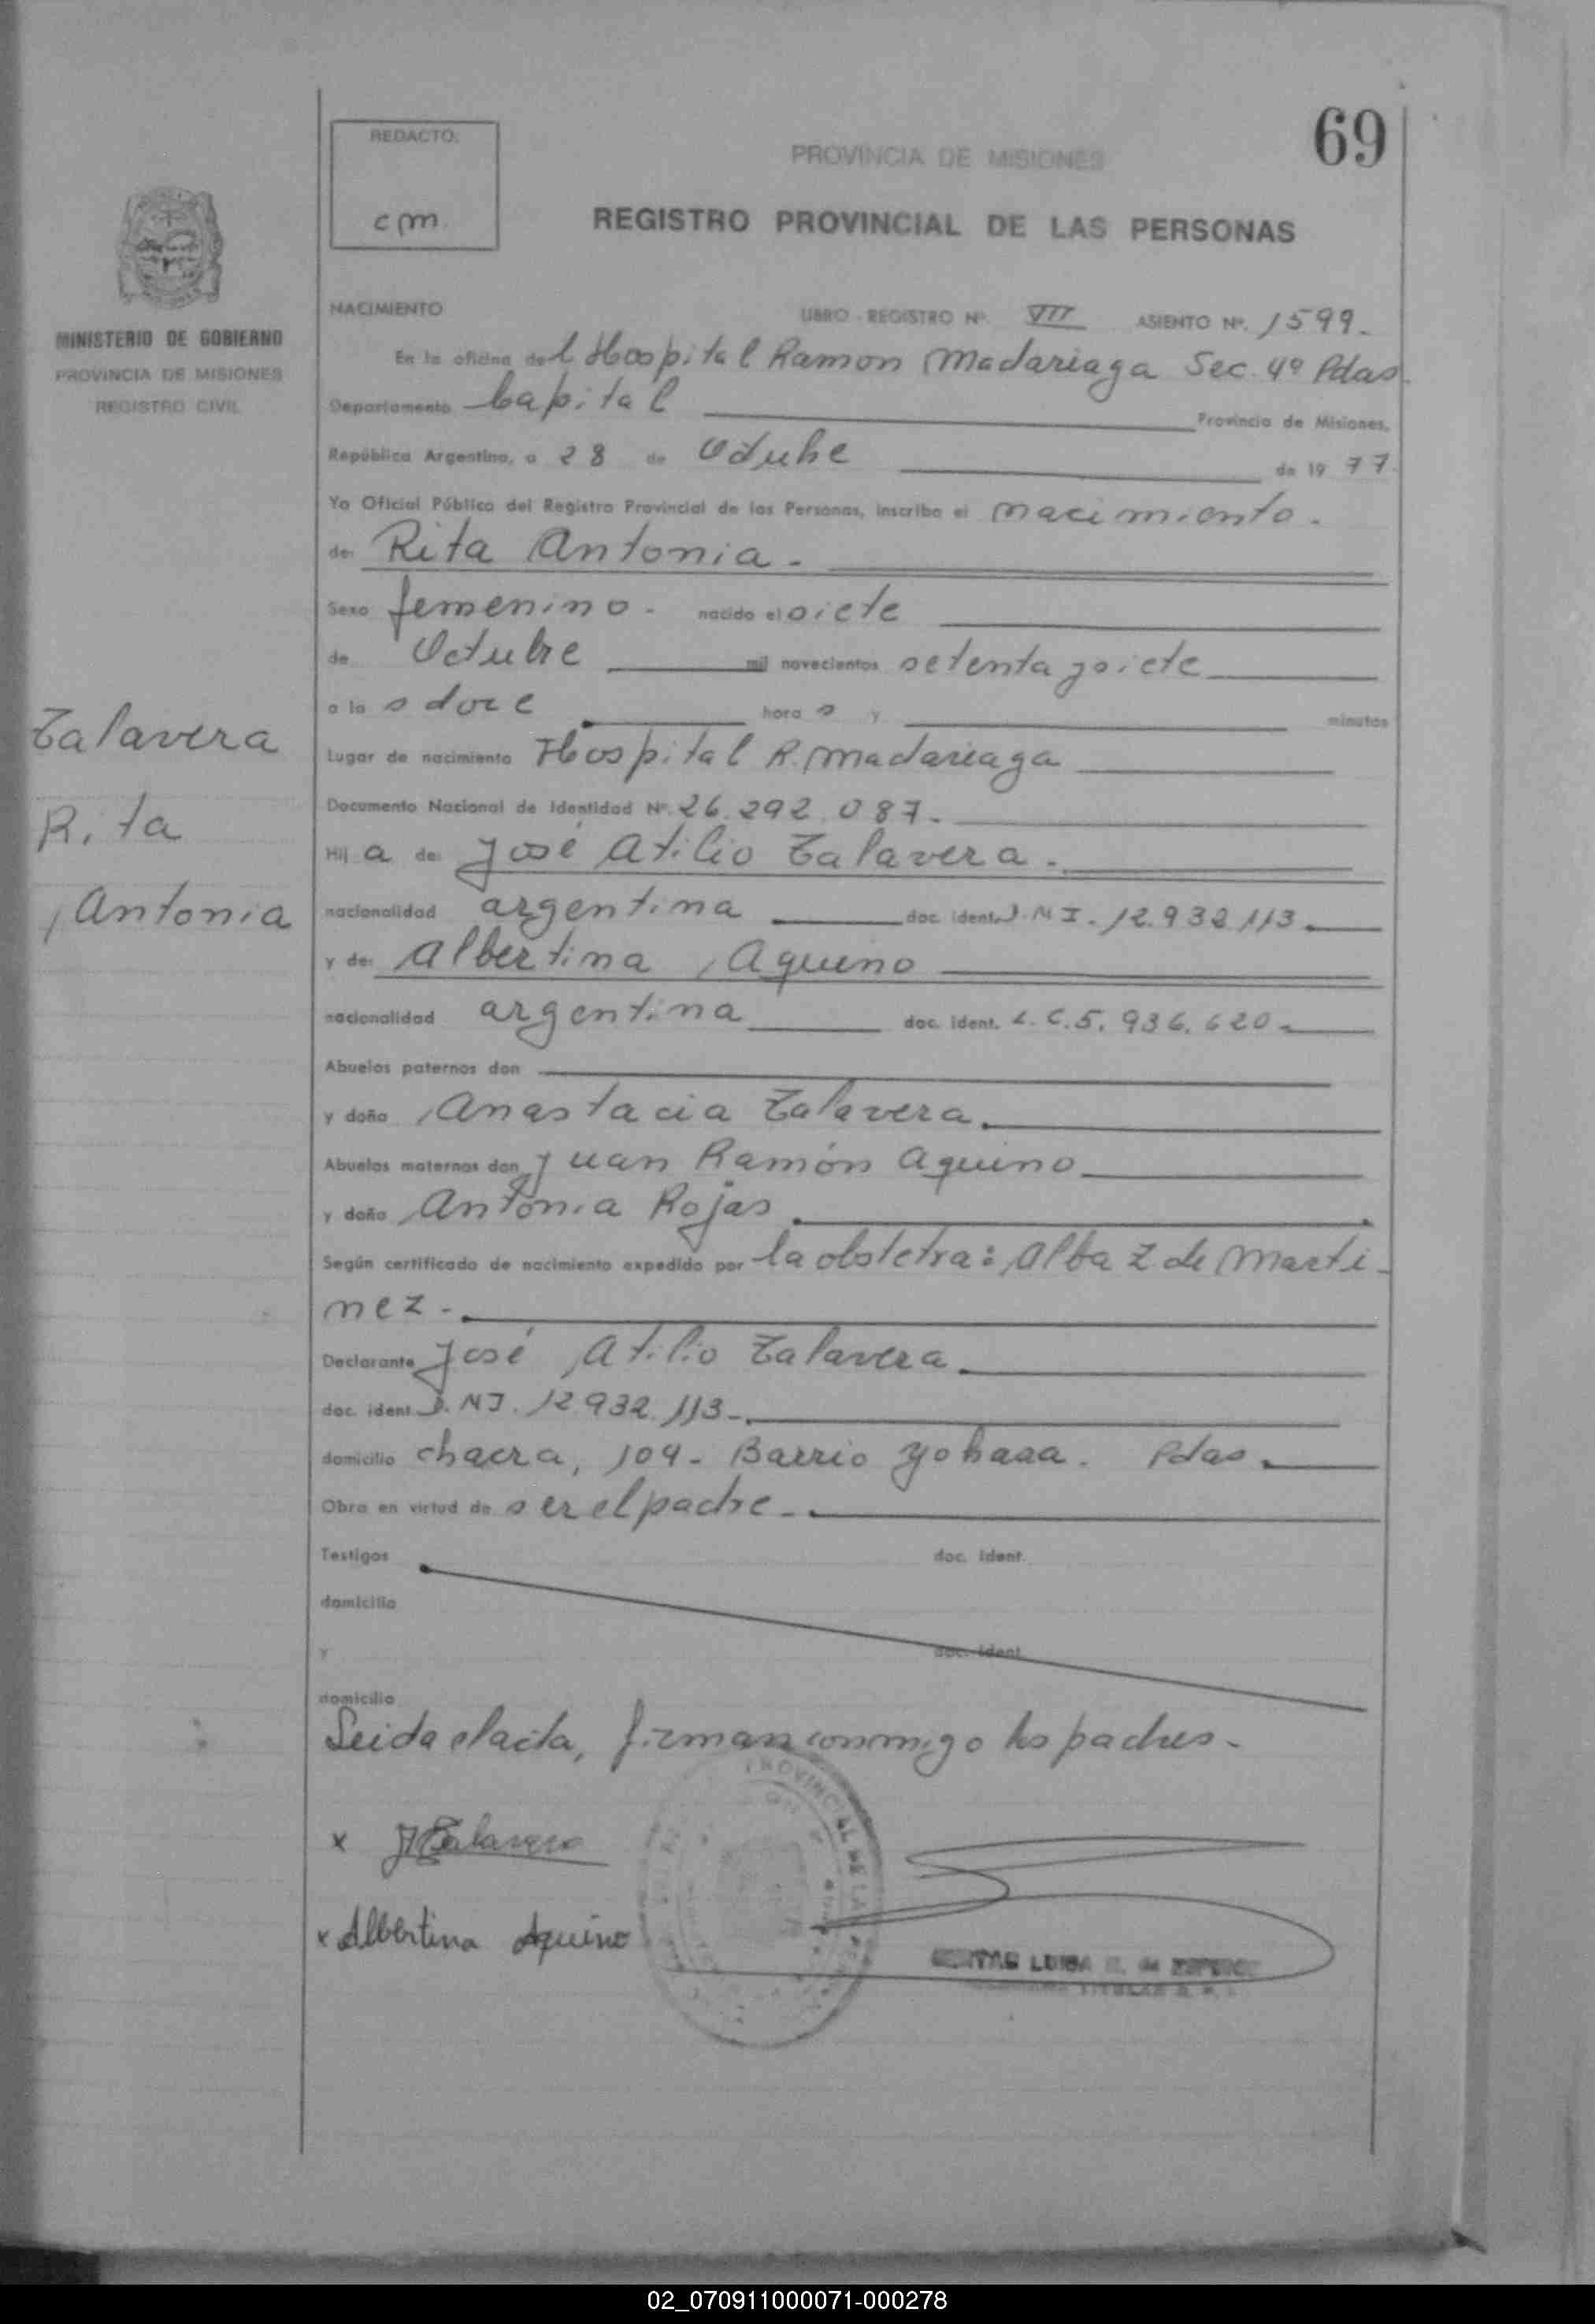 69
REDACTO:
cm.
PROVINCIA DE MISIONES
REGISTRO PROVINCIAL DE LAS PERSONAS
MINISTERIO DE GOBIERNO
PROVINCIA DE MISIONES
REGISTRO CIVIL
Talavera
Rita
Antonia
NACIMIENTO LIBRO - REGISTRO Nº. VII ASIENTO Nº. 1599.-
En la oficina del Hospital Ramon Madariaga Sec. 4º Pdas.
Departamento Capital Provincia de Misiones,
República Argentina, a 28 de Octubre de 1977.
Yo Oficial Público del Registro Provincial de las Personas, inscribo el nacimiento.
de: Rita Antonia.-
Sexo femenino.- nacido el siete
de Octubre mil novecientos setenta y siete
a las doce horas y minutos
Lugar de nacimiento Hospital R. Madariaga
Documento Nacional de Identidad Nº. 26.292.087.-
Hija de: José Atilio Talavera.-
nacionalidad argentina doc. ident. D.N.I. 12.932.113.
y de: Albertina Aquino
nacionalidad argentina doc. ident. L.C. 5.936.620.-
Abuelos paternos don
y doña Anastacia Talavera.
Abuelos maternos don Juan Ramón Aquino
y doña Antonia Rojas
Según certificado de nacimiento expedido por la obstetra: Alba Z de Marti-
nez.-
Declarante José Atilio Talavera.
doc. ident. D.N.I. 12.932.113.-
domicilio chacra, 104- Barrio Yohasa. Pdas.
Obra en virtud de ser el padre.-
Testigos doc. ident.
domicilio
y doc. ident.
domicilio
Leida el acta, firman conmigo los padres.-
x JTalavera
x Albertina Aquino
PROVINCIAL DE LAS
LUISA
02_070911000071-000278